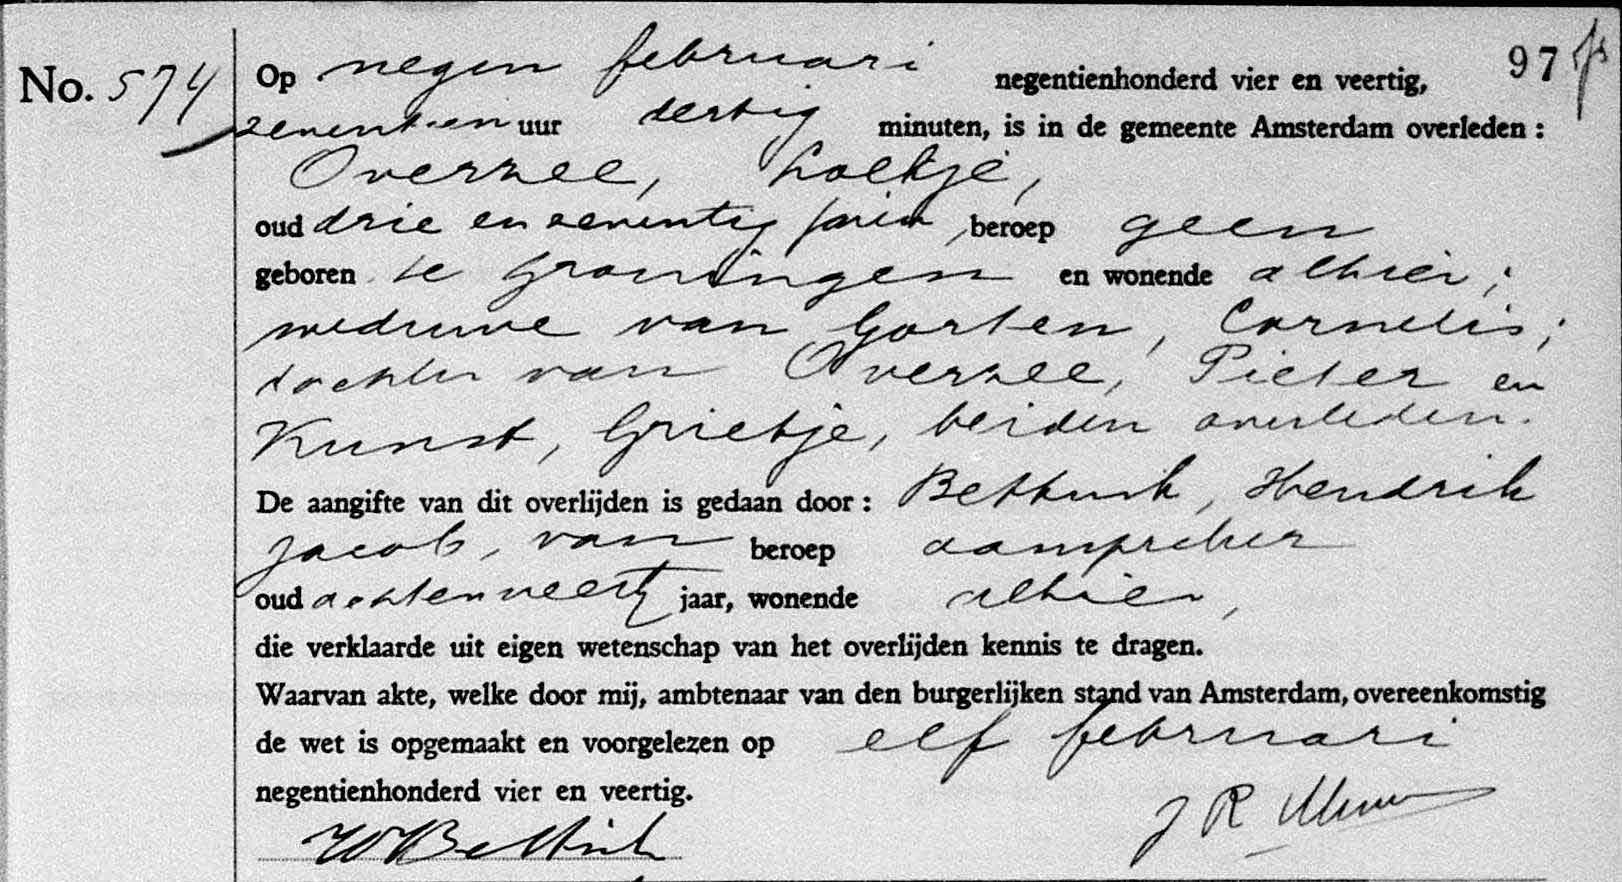 97
No. 574
Op negen februari negentienhonderd vier en veertig,
zeventien uur dertig minuten, is in de gemeente Amsterdam overleden :
Overzee, Loeltje,
oud drie en zeventig jaren, beroep geen
geboren te Groningen en wonende alhier;
weduwe van Gorten, Cornelis;
dochter van Overzee, Pieter en
Kunst, Grietje, beiden overleden.
De aangifte van dit overlijden is gedaan door : Hendrik
Jacob, van beroep aanspreker
oud achtenveertig jaar, wonende alhier,
die verklaarde uit eigen wetenschap van het overlijden kennis te dragen.
Waarvan akte, welke door mij, ambtenaar van den burgerlijken stand van Amsterdam, overeenkomstig
de wet is opgemaakt en voorgelezen op elf februari
negentienhonderd vier en veertig.